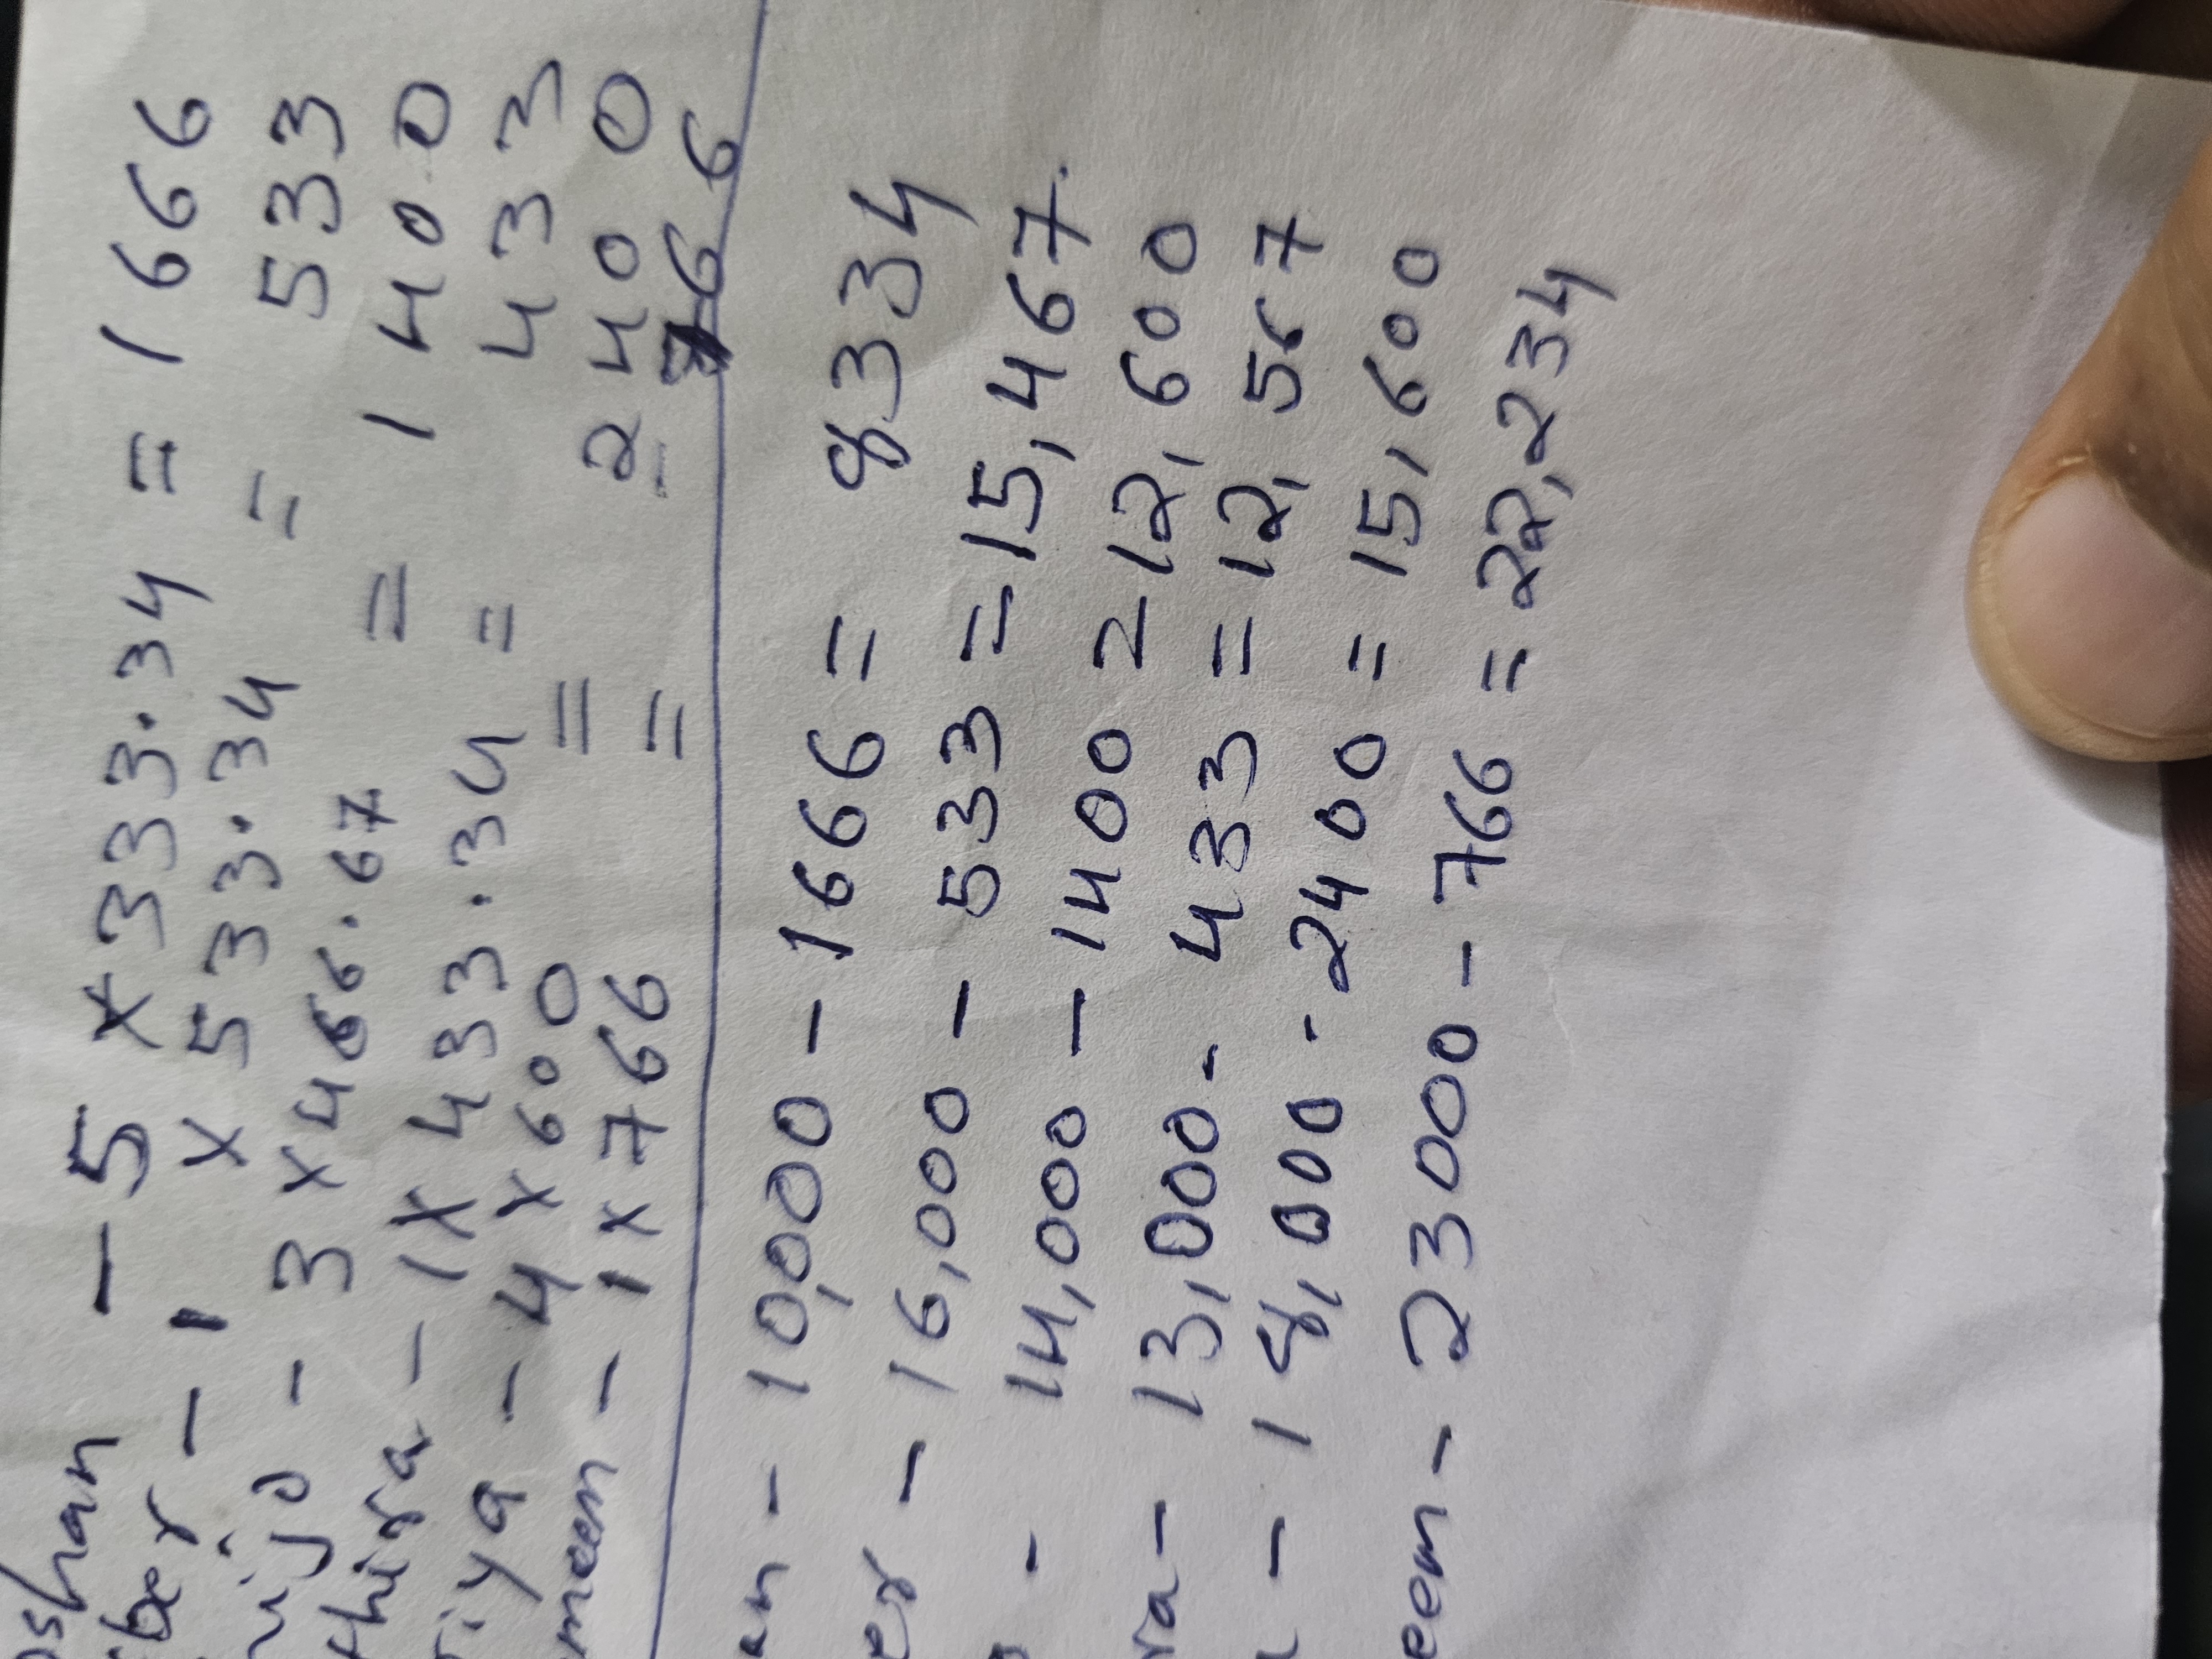 oshan - 5 x 333.34 = 1666
ber - 1 x 533.34 = 533
nijo - 3 x 466.67 = 1400
thira - 1 x 433.34 = 433
riya - 4 x 600 = 2400
meen - 1 x 766 = 766
an - 10,000 - 1666 = 8334
er - 16,000 - 533 = 15,467.
o - 14,000 - 1400 = 12,600
ra - 13,000 - 433 = 12,567
a - 18,000 - 2400 = 15,600
eem - 23000 - 766 = 22,234